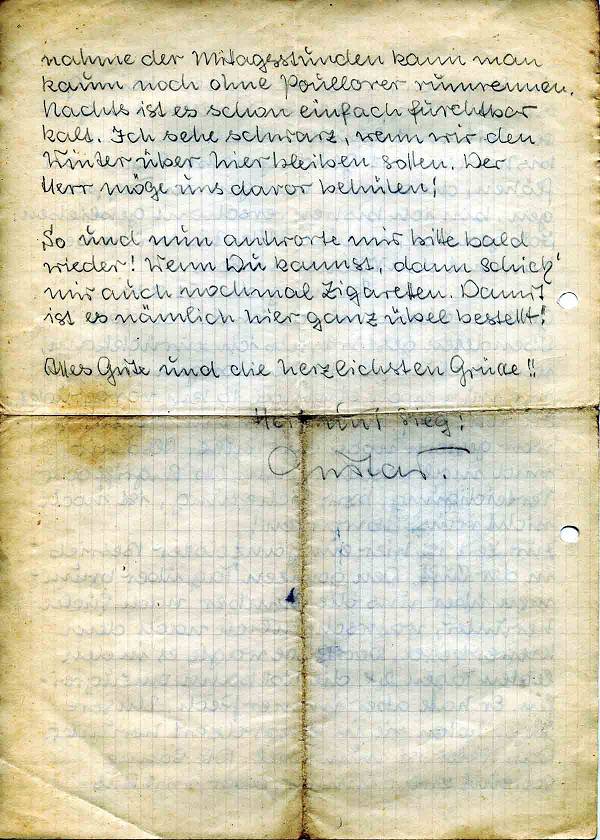 nahme der Mittagsstunden kann man
kaum noch ohne Poullover rumrennen.
Nachts ist es schon einfach furchtbar
kalt. Ich sehe schwarz, wenn wir den
Winter über hier bleiben sollen. Der
Herr möge uns davor behüten!
So und nun antworte mir bitte bald
wieder! Wenn Du kannst, dann schick'
mir auch nochmal Zigaretten. Damit
ist es nämlich hier ganz übel bestellt!
Alles Gute und die herzlichsten Grüße!!
Heil und Sieg!
Gustav.